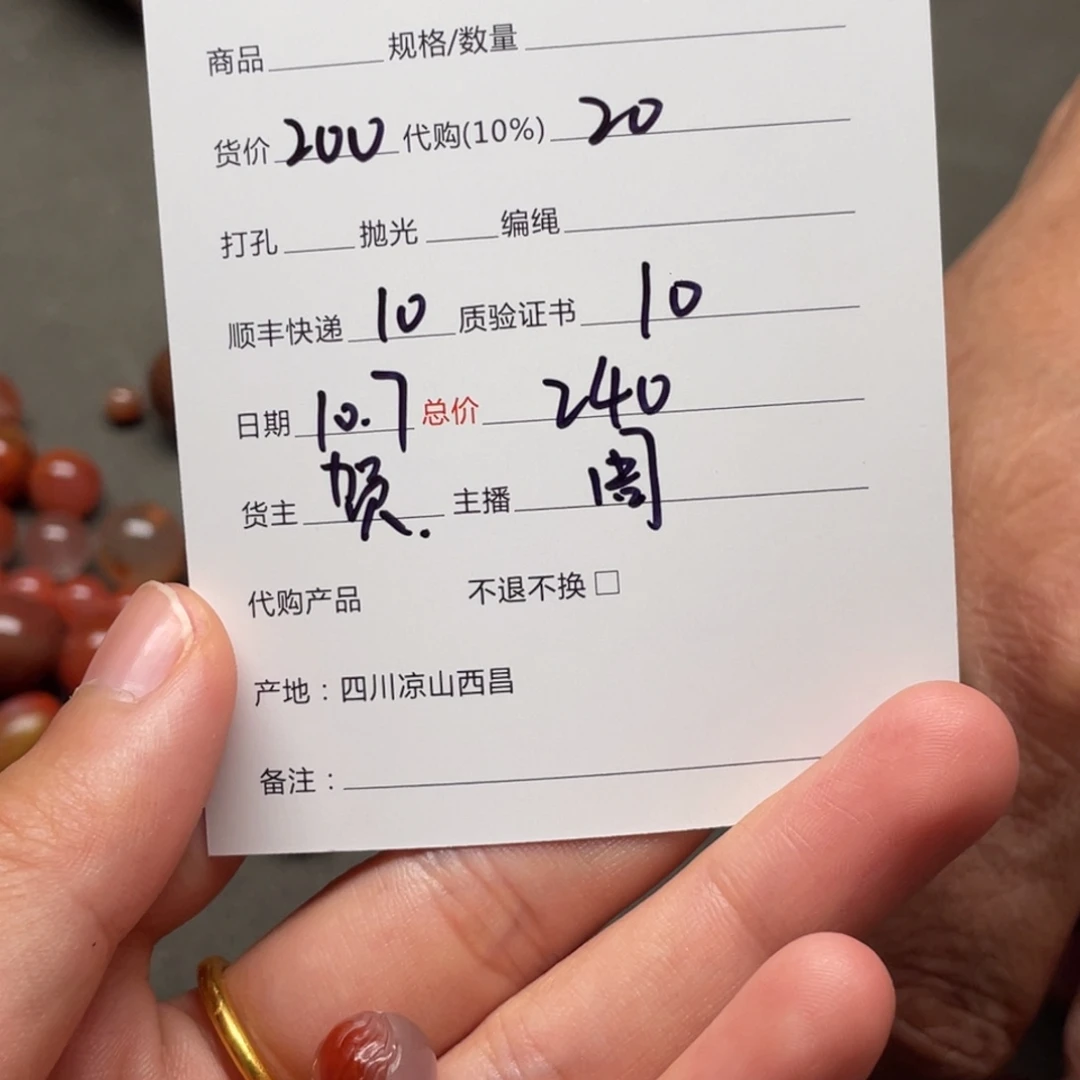 商品 规格/数量
货价 200 代购(10%) 20
打孔 抛光 编绳
顺丰快递 10 质验证书 10
日期 10.7 总价 240
货主 贺. 主播 周
代购产品 不退不换□
产地：四川凉山西昌
备注：